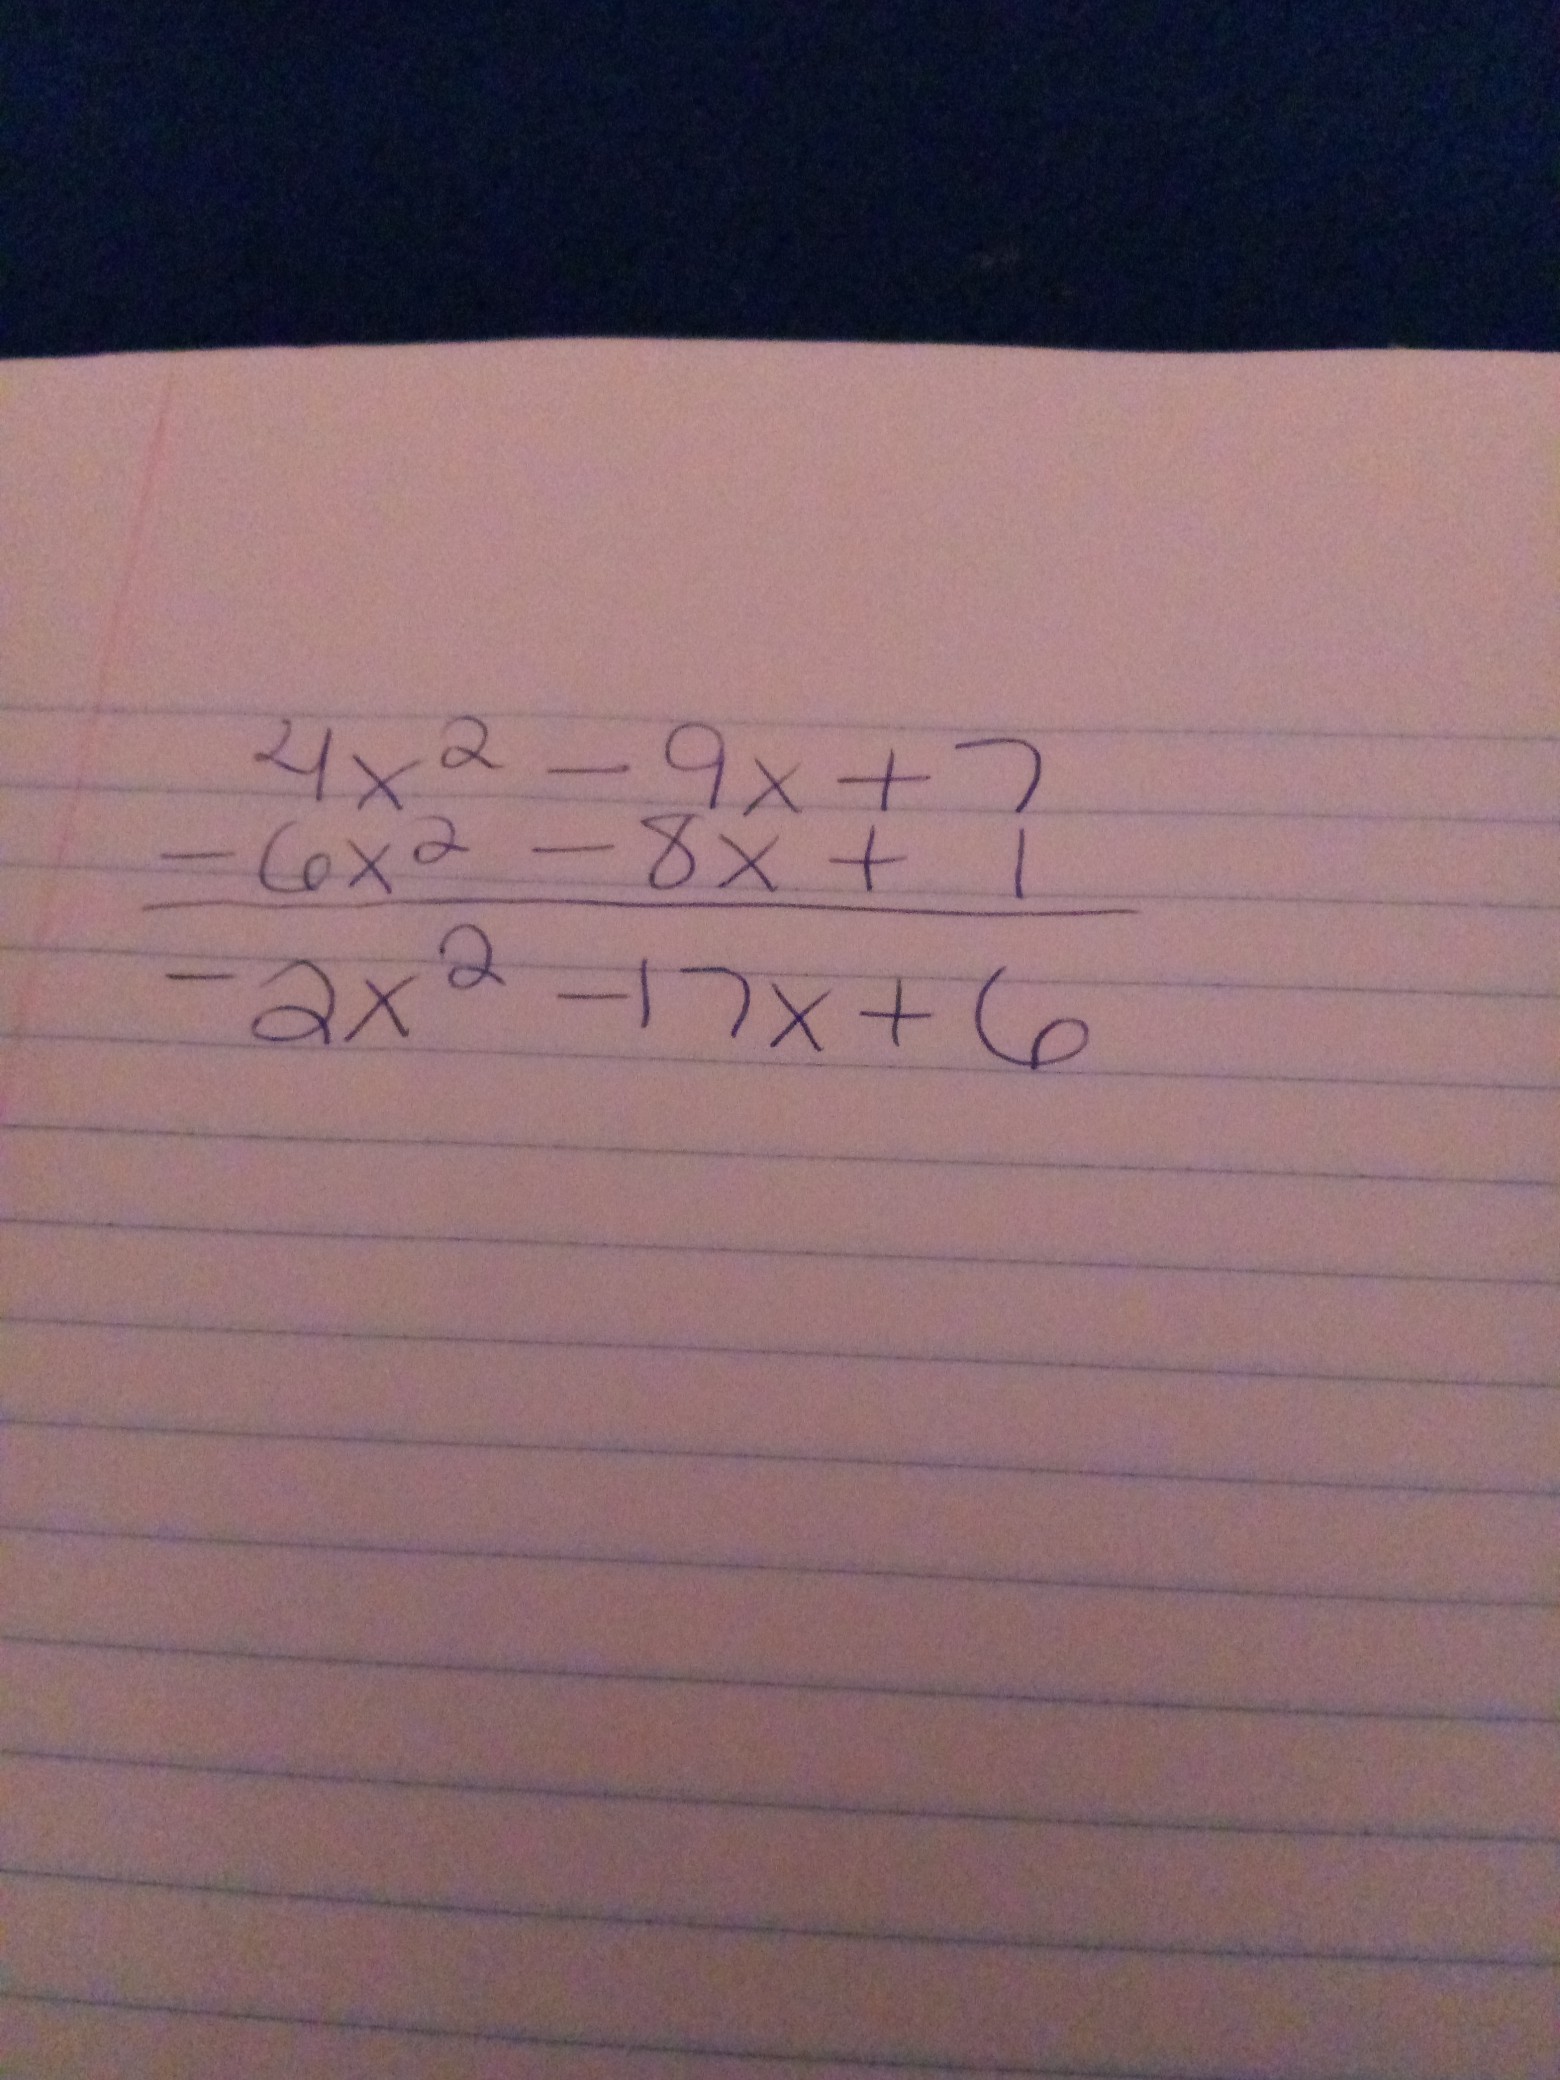 4x² - 9x + 7
- 6x² - 8x + 1
-2x² - 17x + 6